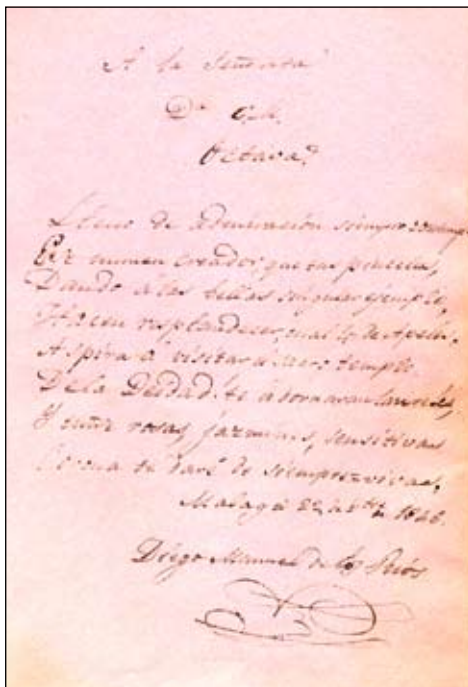 A la Señorita
Dª C. M.
Octava.
Lleno de admiracion siempre contemplo
Ese numen creador, que tus pinceles,
Dando a las bellas singular ejemplo,
Hacen resplandecer, cual de Apeles,
Aspira a visitar el sacro templo
De la Deidad: te adornaran laureles,
Y entre rosas, jazmines, sensitivas
Corona te hará de siemprevivas.
Malaga 22 1846.
Diego Manuel de los Rios